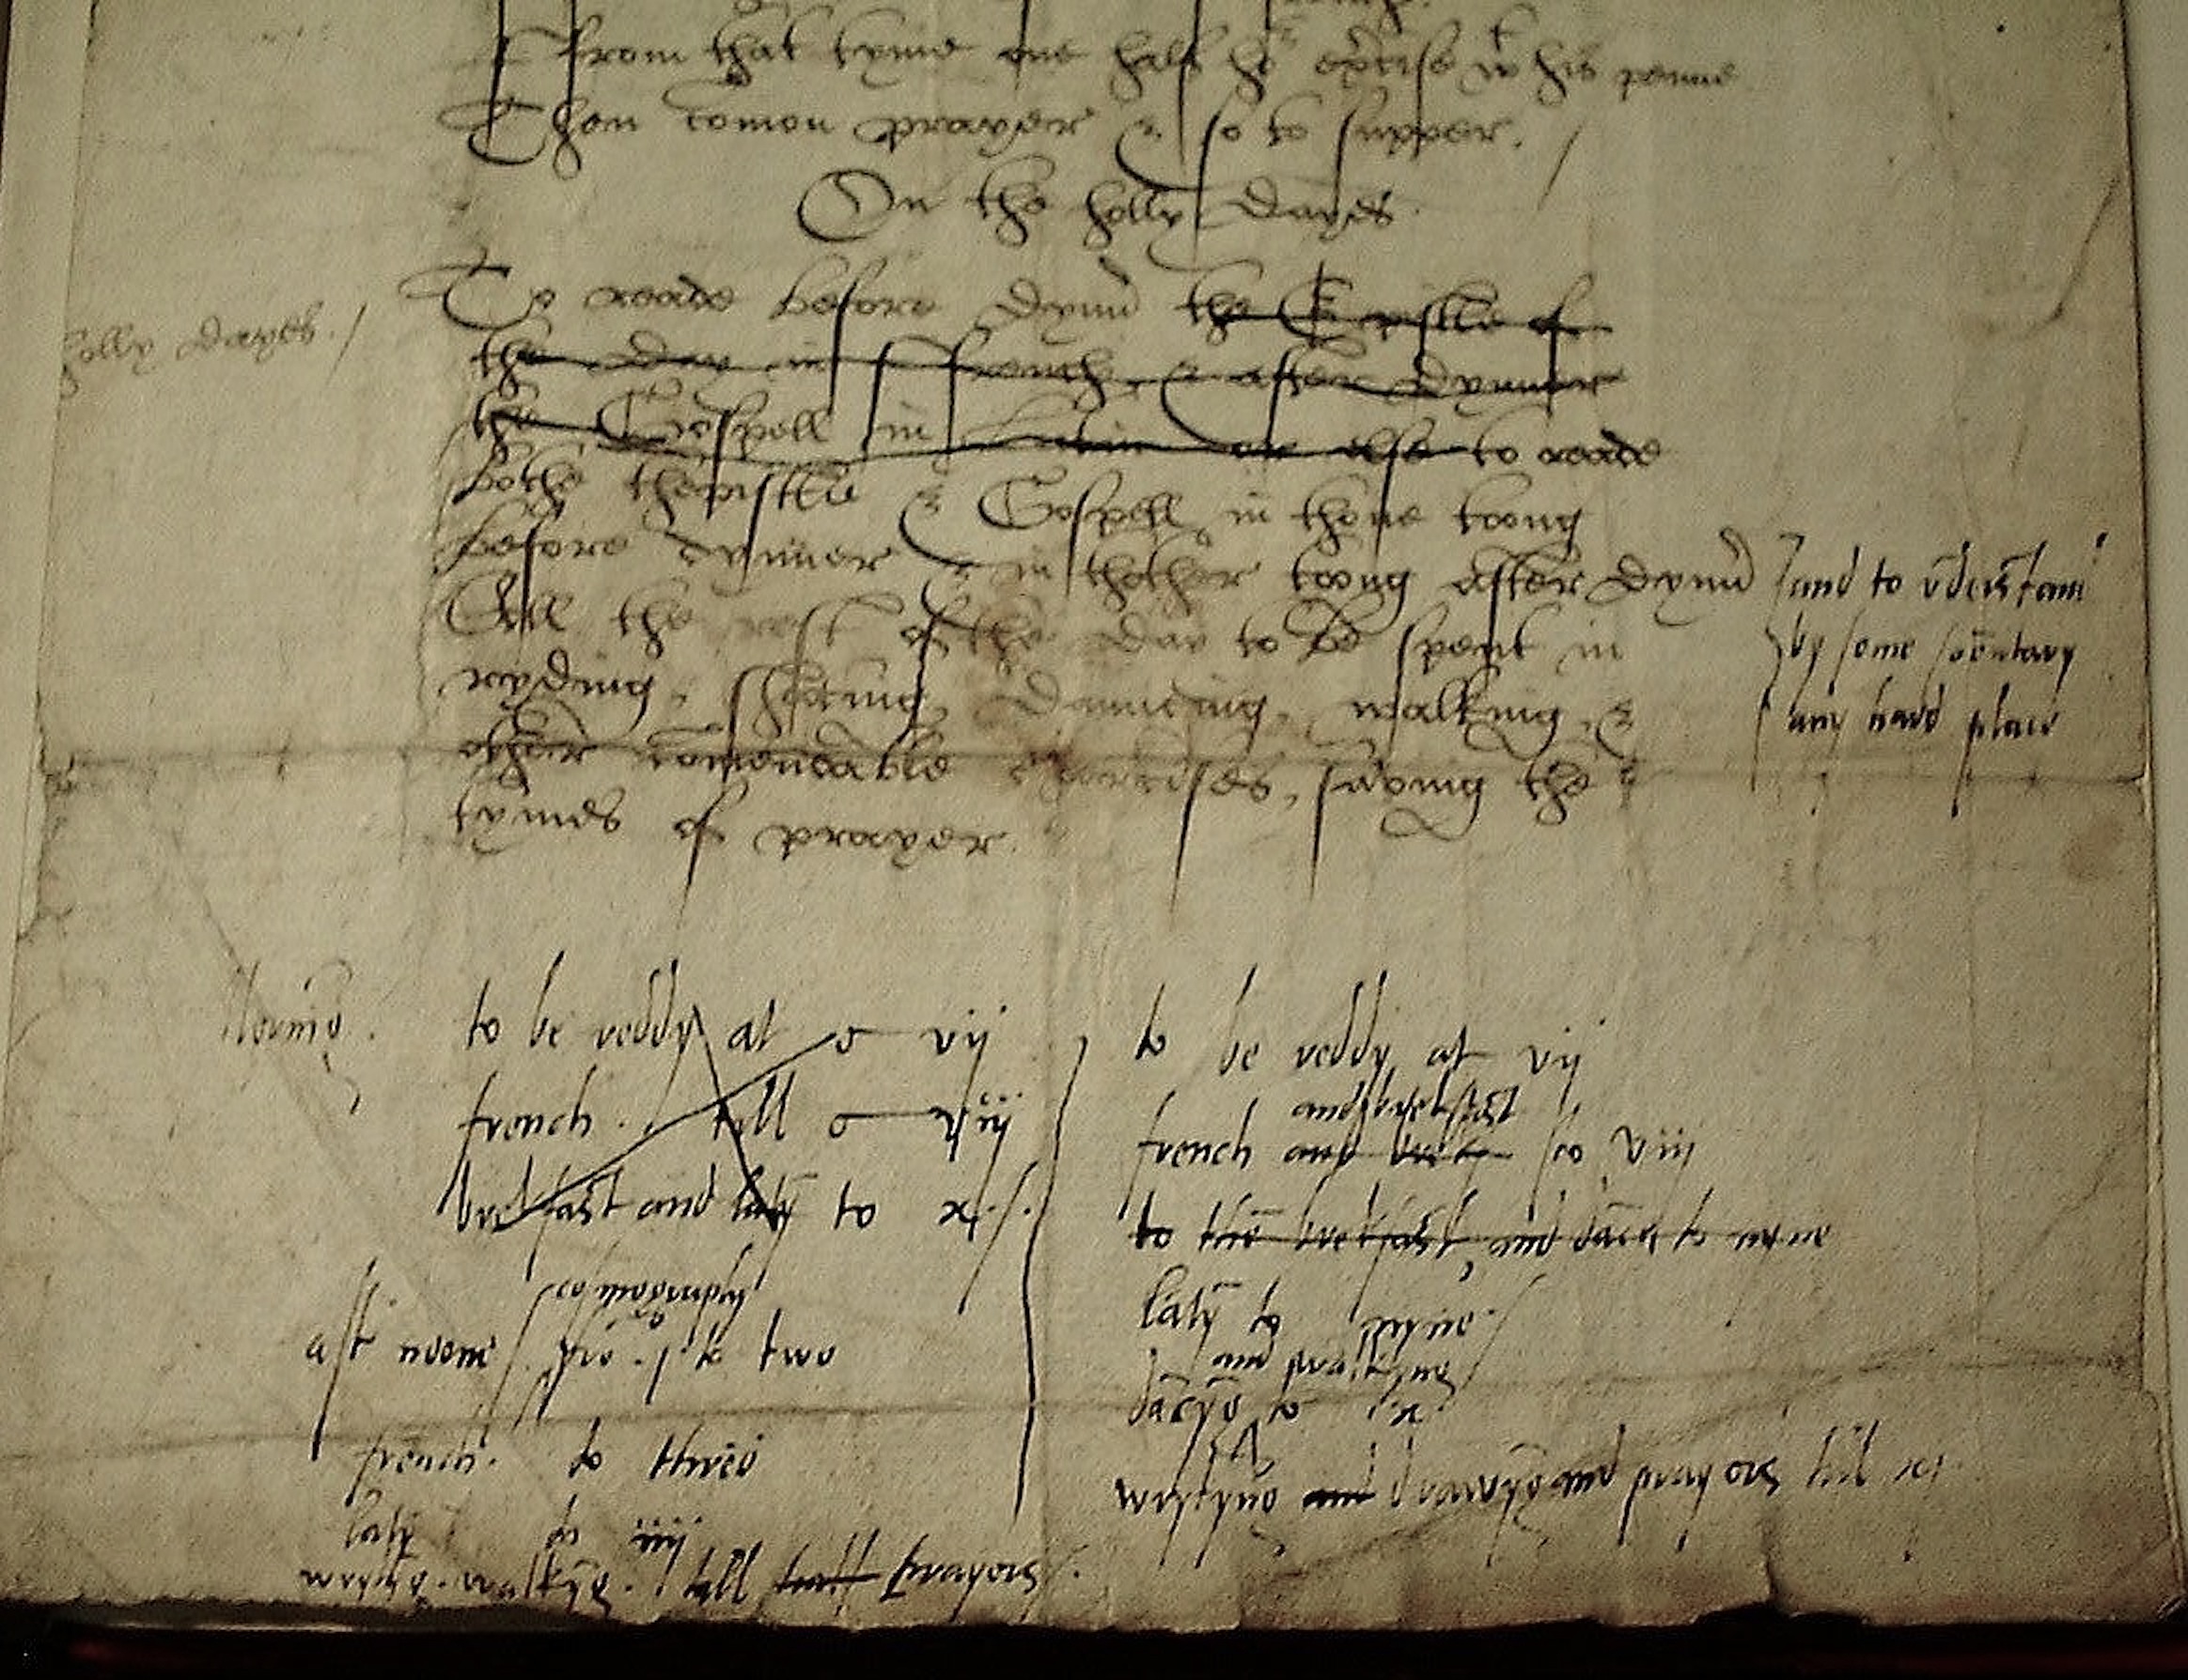 from that tyme one half ho exercise wt his penne
Then comon prayer & so to supper.
On the holly dayes.
holly dayes./
To reade before dynn the Epistle of
the day in ffrench, & after dynner
the Gospell in Latin or else to reade
bothe thepistle & Gospell in thone toong
before dynner & in thother toong after dynn
and to vderstand
by some comentary
any hard place
All the rest of the day to be spent in
ryding, shoting, dauncing, walking, &
other comendable exercises, saving the
tymes of prayer.
Mornig.
to be reddy at vij
french . till viij
brekfast and laty to x./.
aft noone
cosmography
to two
french. to three
laty to iiij
wrytyg. walkyg. till prayors.
to be reddy at vij
and brekfast
french and brek to viij
to the brekfast, and dacig to nyne
laty to nyne
and
dacyg to x
wrytyng and drawyg and prayors till xj